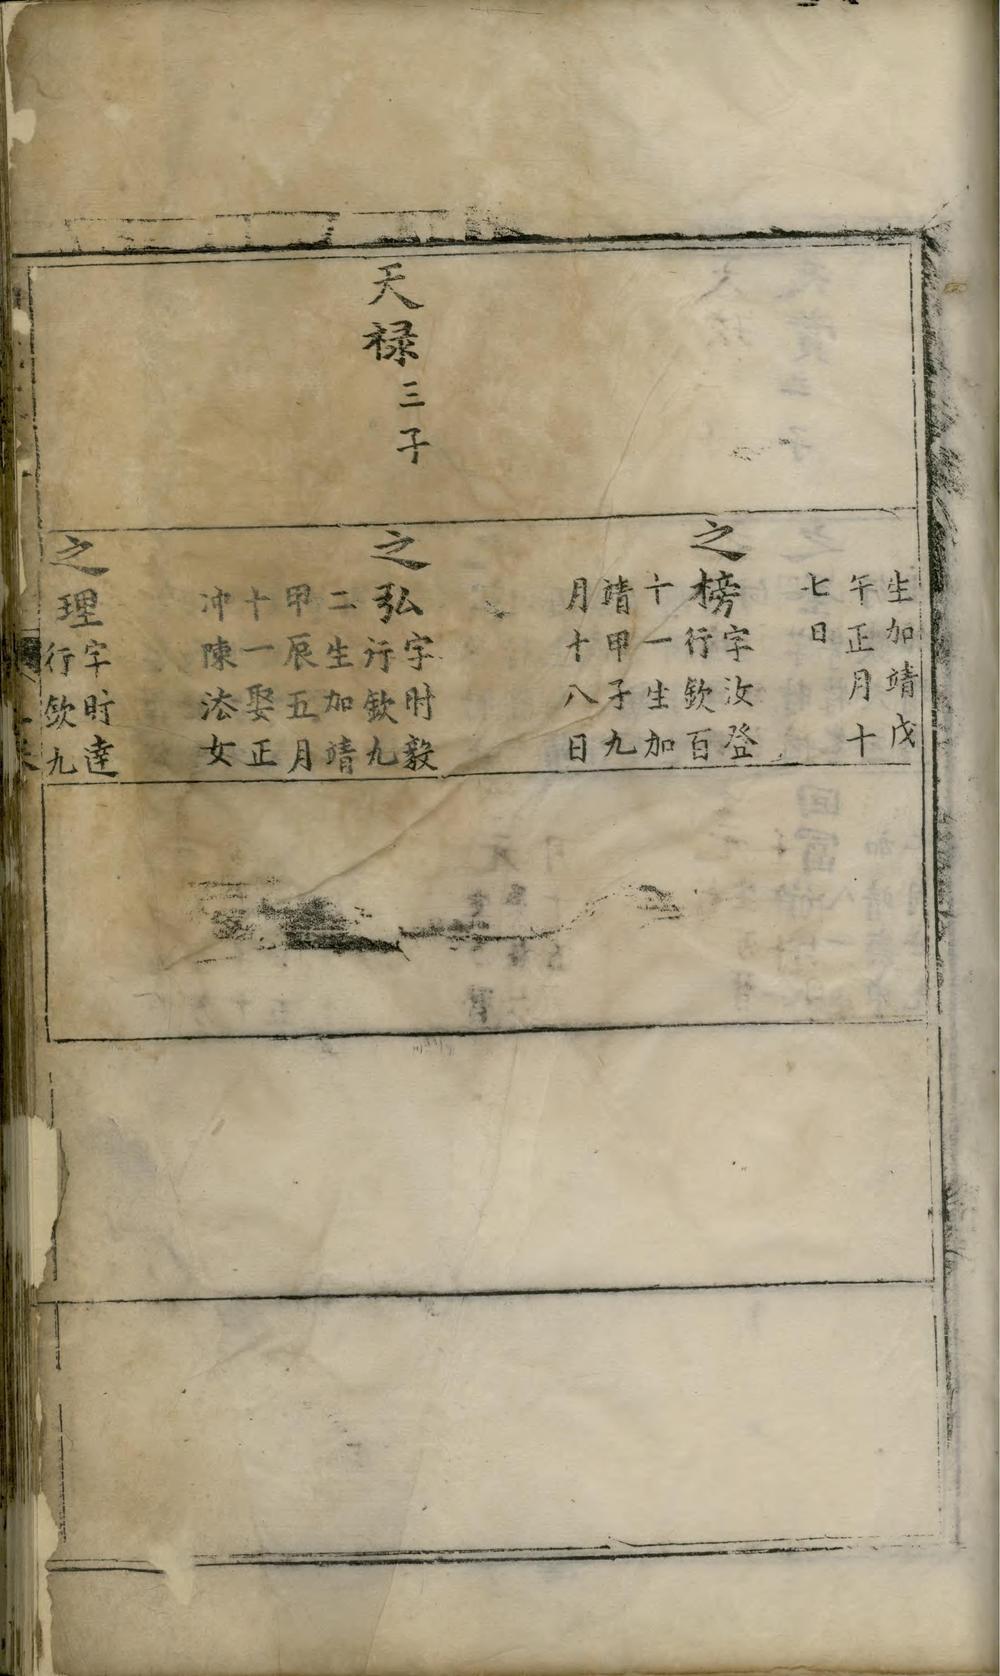 天禄三子
生加靖戊
午正月十
七日
之榜字汝登
行欽百
十一生加
靖甲子九
月十八日
之弘字时毅
行欽九
二生加靖
甲辰五月
十一娶正
冲陳法女
之理字时達
行欽九